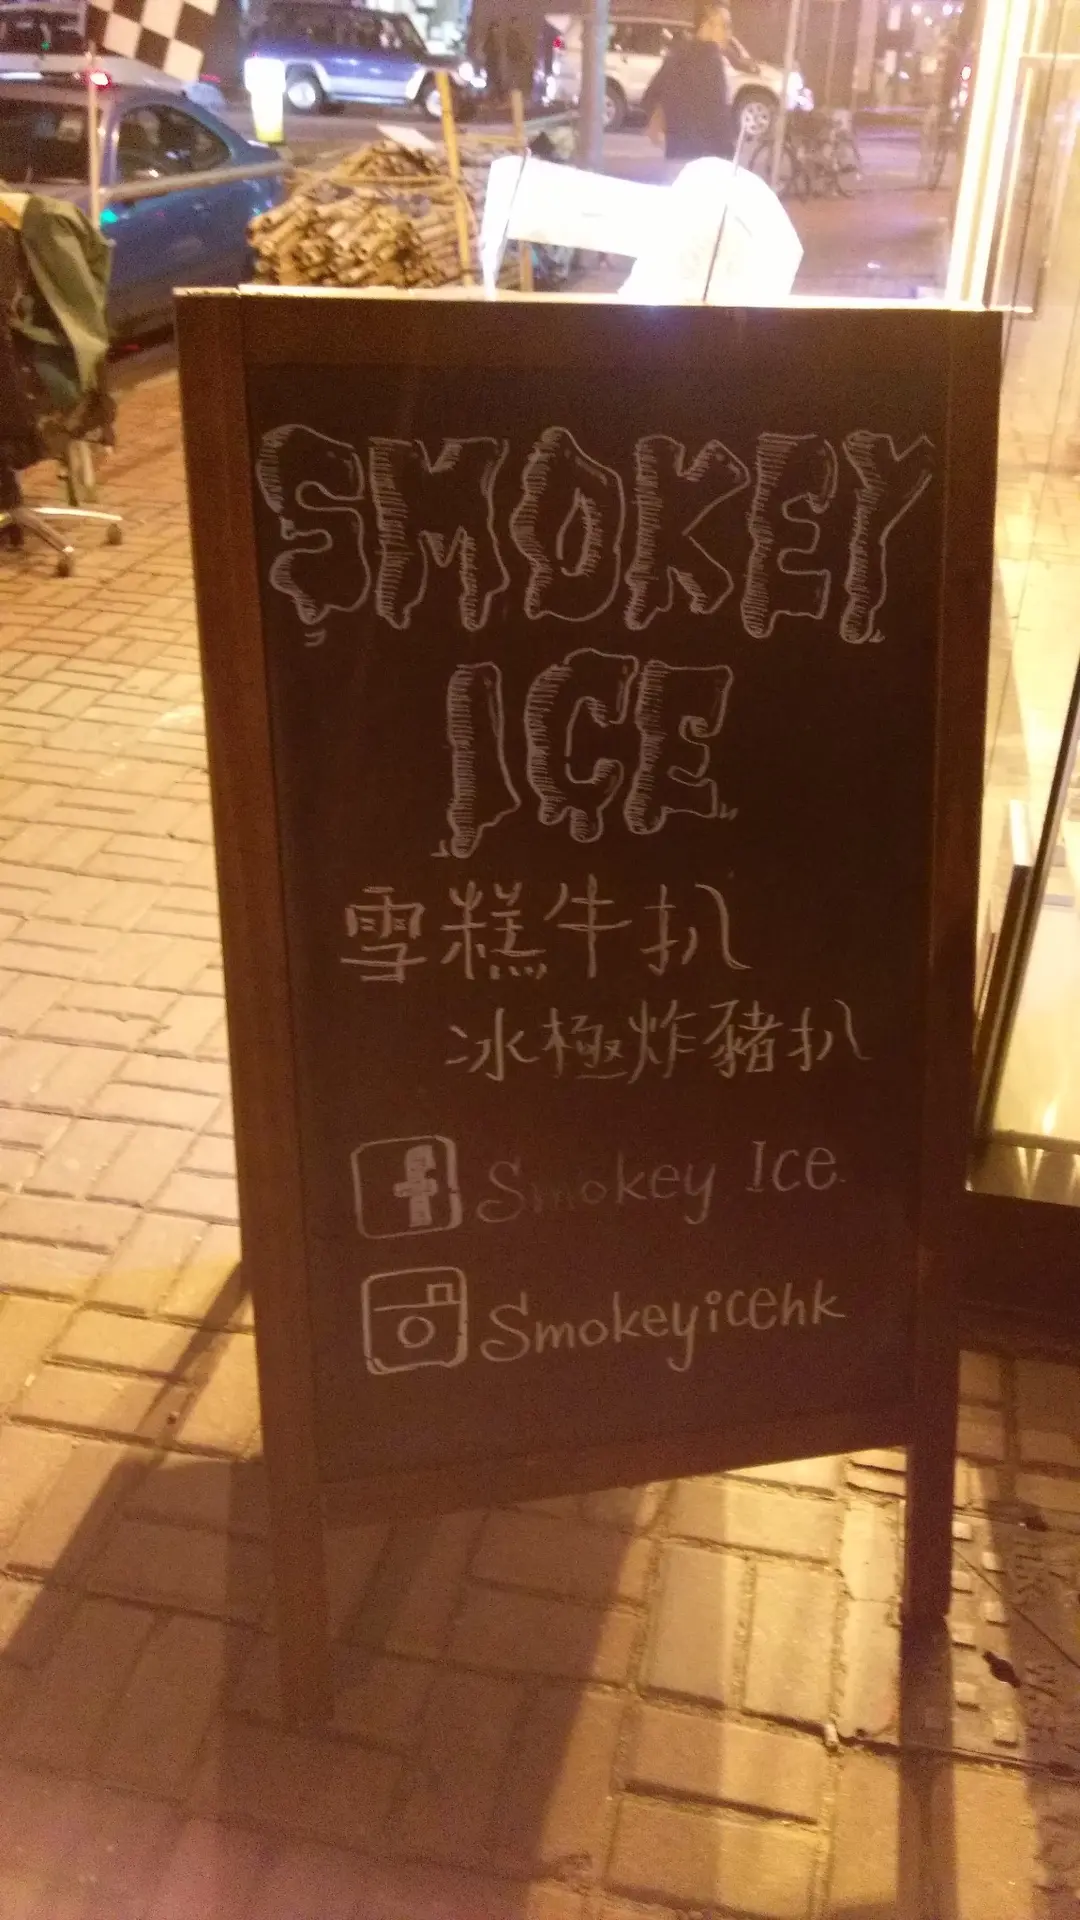 SMOKEY
ICE
雪糕牛扒
冰極炸豬扒
f Smokey Ice
Smokeyicehk